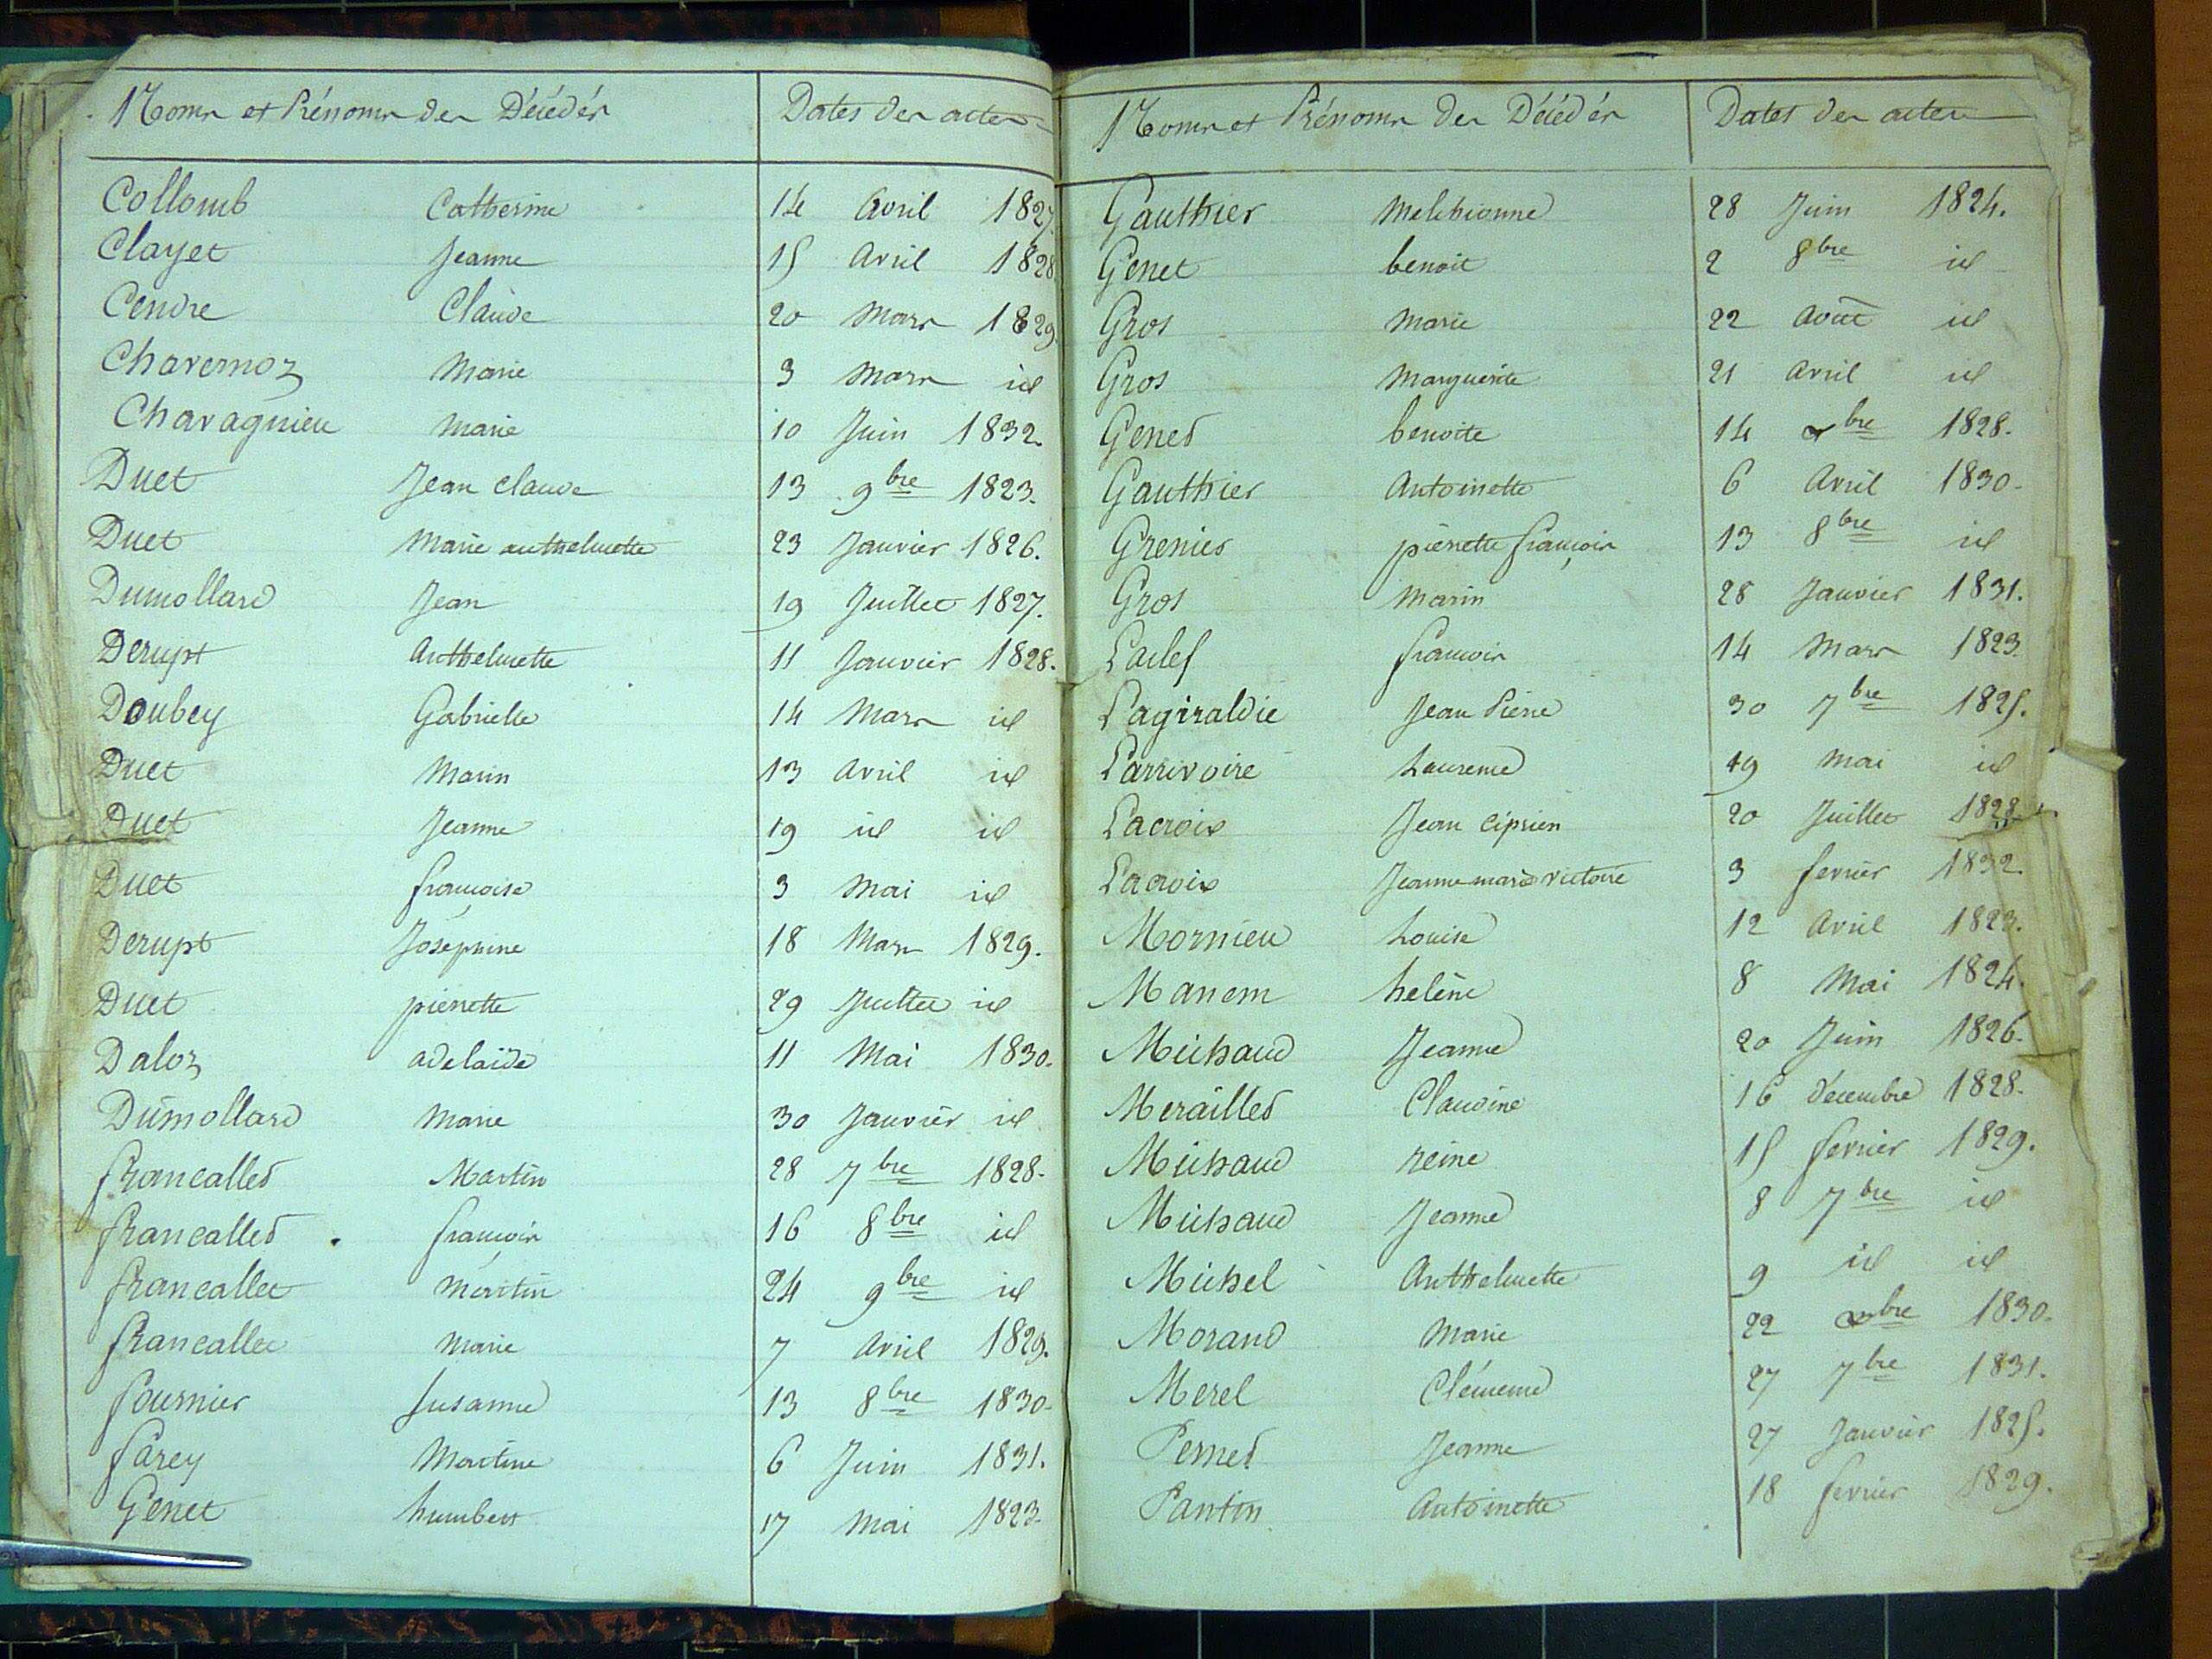 Noms et Prénoms des Décédés Dates des actes
Collomb Catherine 14 Avril 1827.
Clayet Jeanne 15 Avril 1828
Cendre Claude 20 Mars 1829
Chavernoz Marie 3 Mars id
Charagnieu Marie 10 Juin 1832.
Duet Jean Claude 13 9bre 1823.
Duet Marie anthelmette 23 Janvier 1826.
Dumollard Jean 19 Juillet 1827.
Derupt Anthelmette 11 Janvier 1828.
Doubey Gabrielle 14 Mars id
Duet Marin 13 Avril id
Duet Jeanne 19 id id
Duet françoise 3 Mai id
Derupt Joséphine 18 Mars 1829.
Duet pierrette 29 Juillet id
Daloz adelaïde 11 Mai 1830.
Dumollard Marie 30 Janvier id
francallet Martin 28 7bre 1828.
francallet françois 16 8bre id
francallet Martin 24 9bre id
francallet Marie 7 Avril 1829.
fournier Susanne 13 8bre 1830.
farey Martine 6 Juin 1831.
Genet humbert 17 Mai 1823.
Noms et Prénoms des Décédés Dates des actes
Gauthier Melchionne 28 Juin 1824.
Genet benoit 2 8bre id
Gros Marie 22 Août id
Gros Marguerite 21 Avril id
Genet benoite 14 xbre 1828.
Gauthier Antoinette 6 Avril 1830.
Grenier pierrette françois 13 8bre id
Gros Marin 28 Janvier 1831.
Laclef françois 14 Mars 1823.
Lagiraldie Jean Pierre 30 7bre 1825.
Larrivoire Laurence 19 Mai id
Lacroix Jean Ciprien 20 Juillet 1828.
Lacroix Jeanne marie victoire 3 fevrier 1832.
Mornieu Louise 12 Avril 1823.
Manem helène 8 Mai 1824.
Michaud Jeanne 20 Juin 1826.
Merailled Claudine 16 Décembre 1828.
Michaud reine 15 fevrier 1829.
Michaud Jeanne 8 7bre id
Michel Anthelmette 9 id id
Morand Marie 22 xbre 1830.
Merel Clémence 27 7bre 1831.
Pernet Jeanne 27 Janvier 1825.
Pantin Antoinette 18 fevrier 1829.